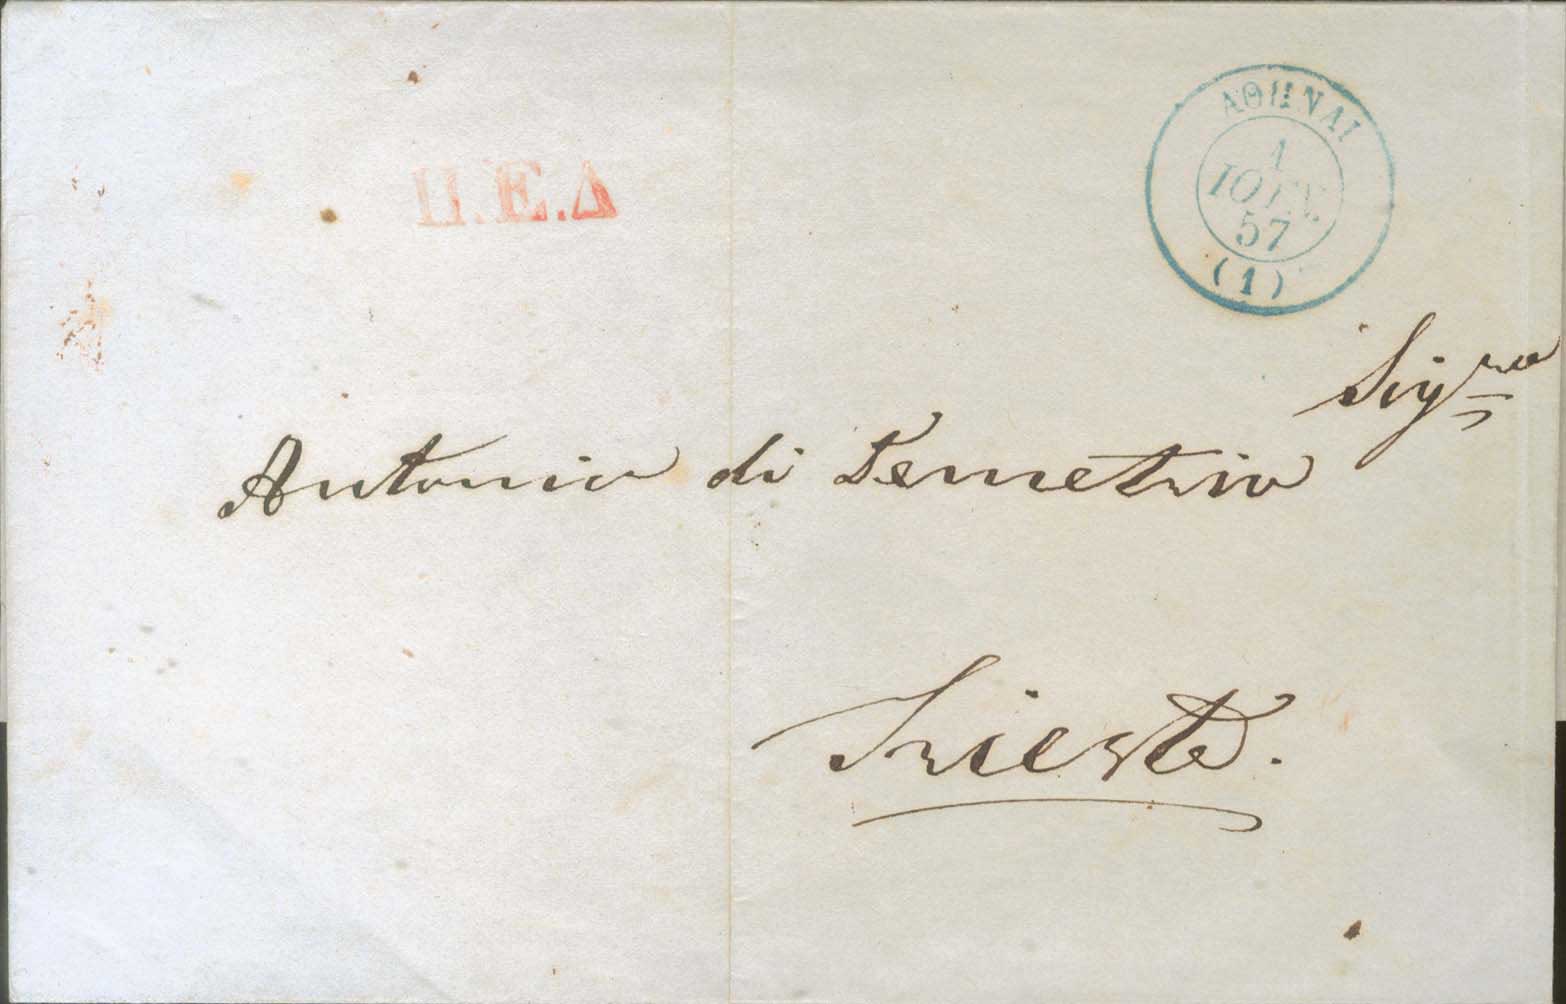 Π.Ε.Δ
ΑΘΗΝΑΙ
1
ΙΟΥΝ.
57
(1)
Sig.ro
Antonio di Demetrio
Trieste.